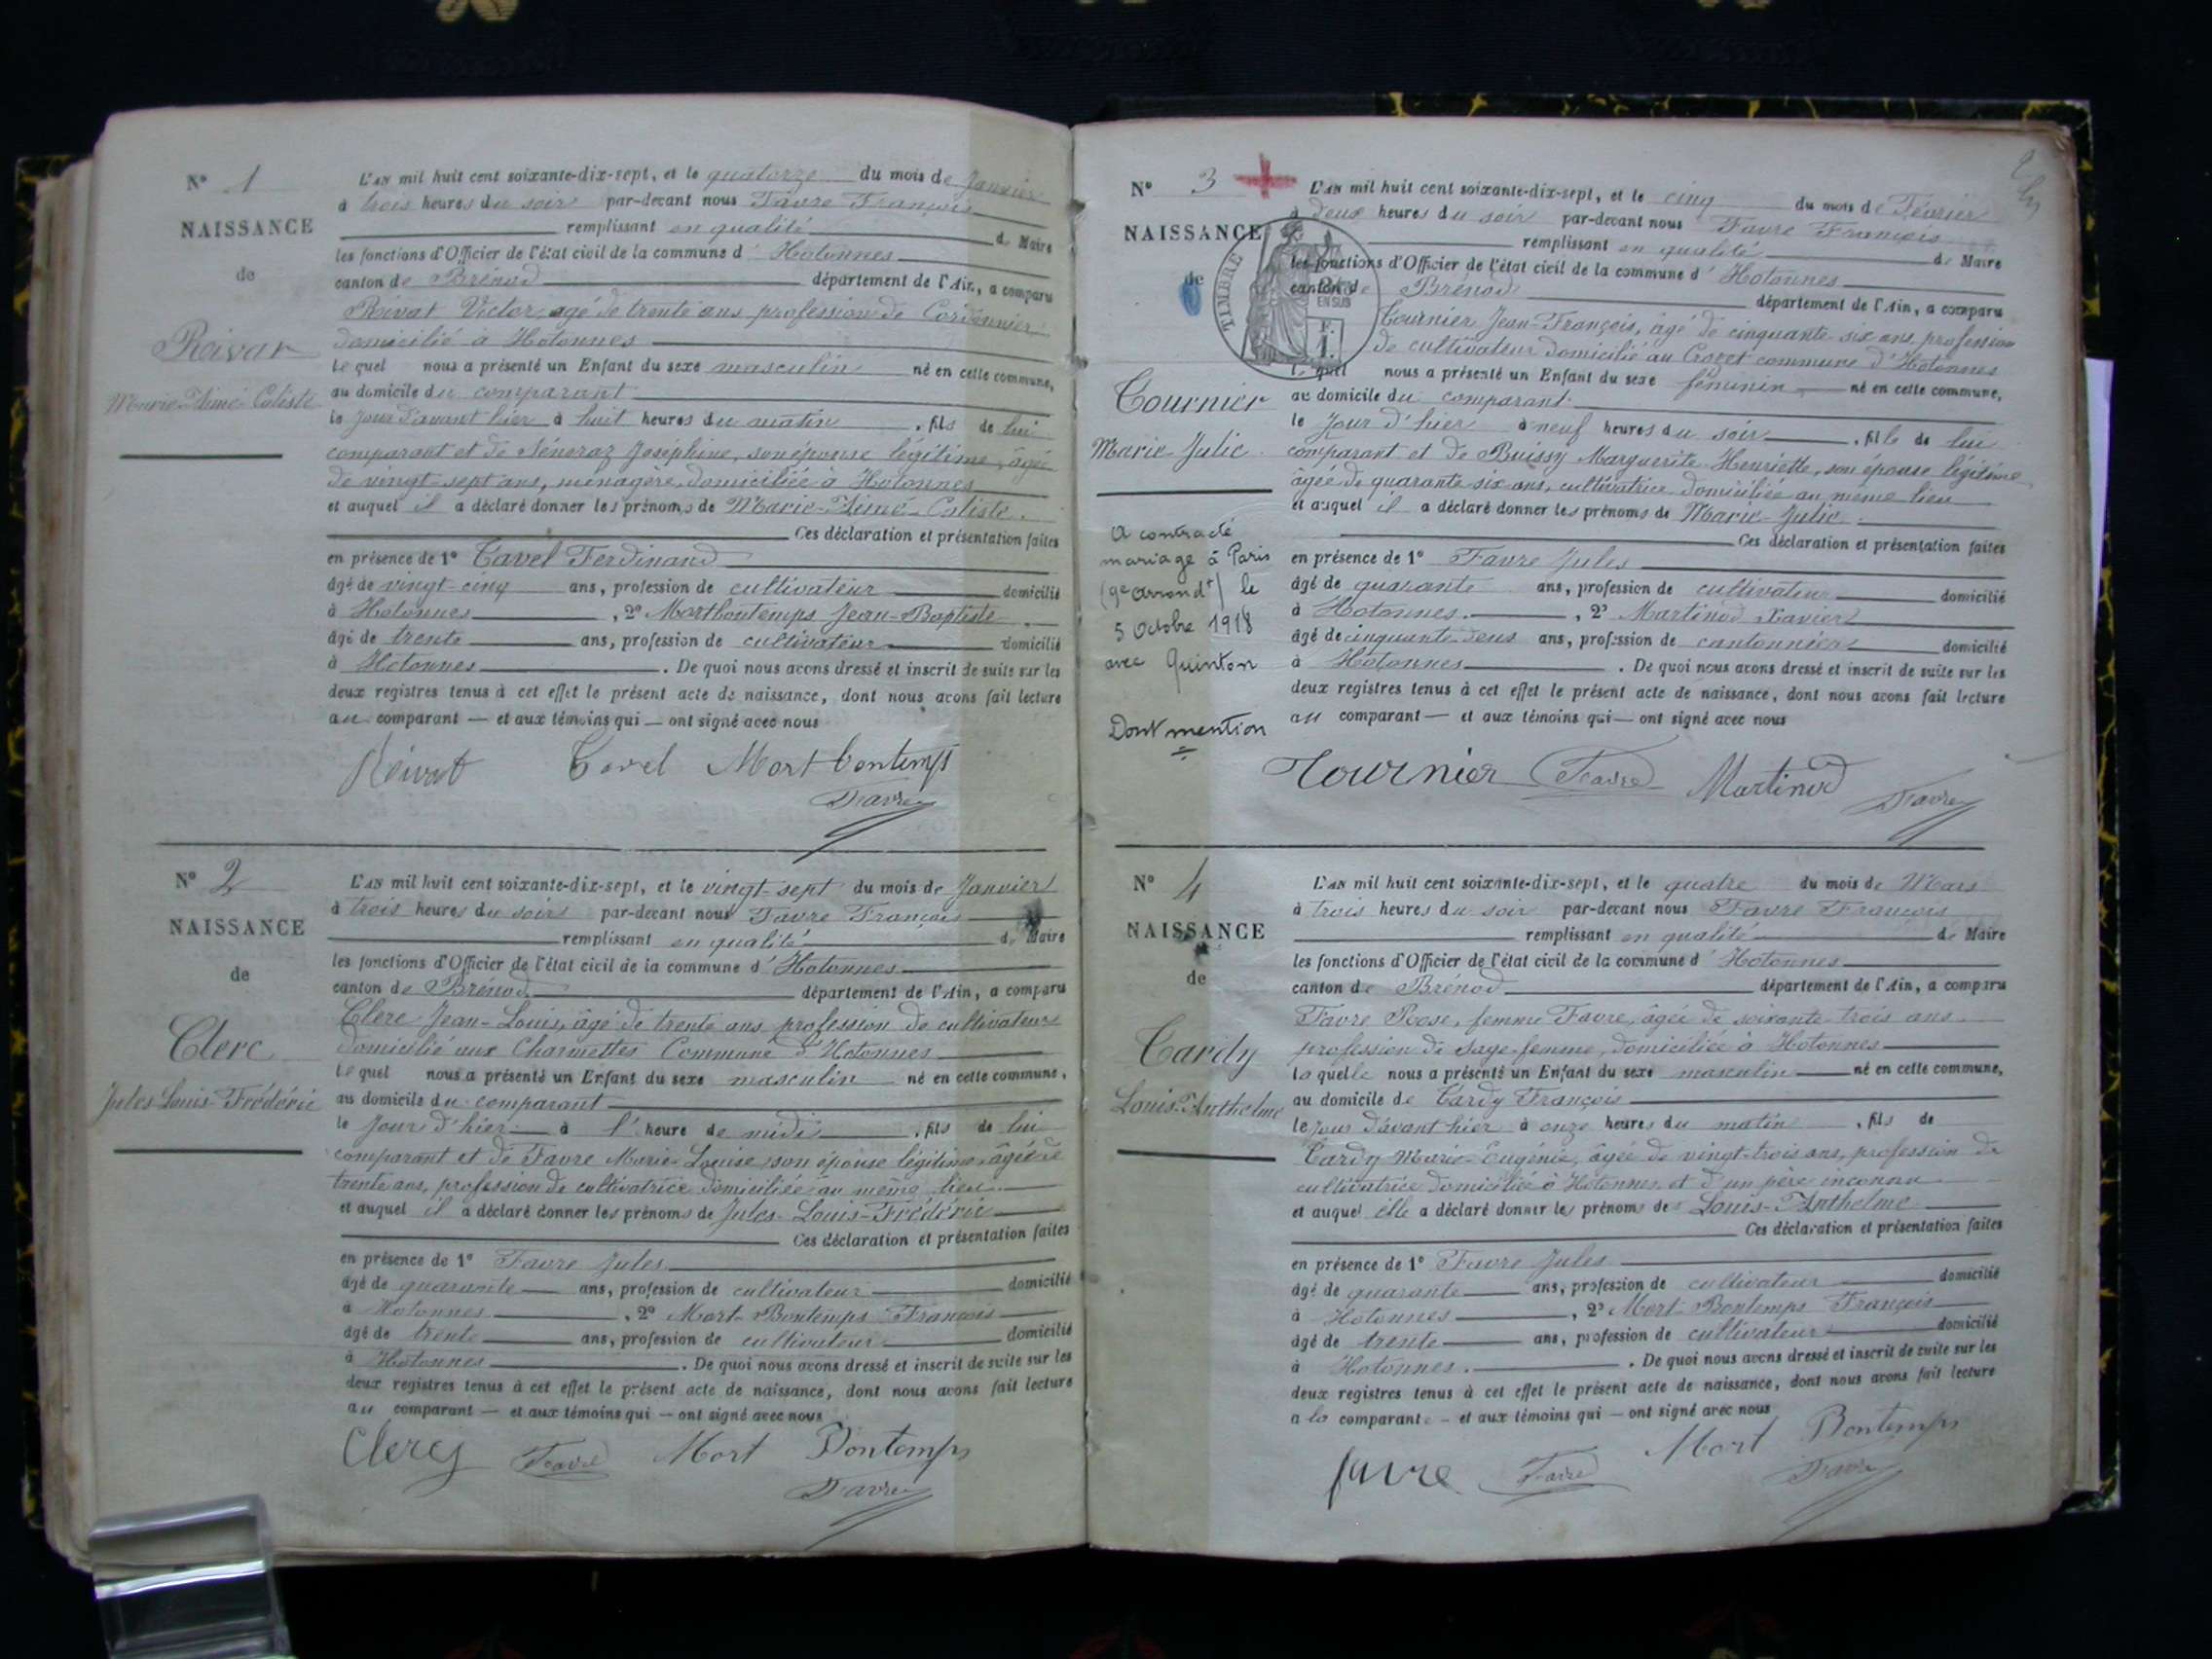 N° 1
NAISSANCE
de
Reivat
Marie-Aimé-Caliste
L'AN mil huit cent soixante-dix-sept, et le quatorze du mois de Janvier
à trois heures du soir par-devant nous Favre François
remplissant en qualité de Maire
les fonctions d'Officier de l'état civil de la commune d'Hotonnes
canton de Brénod département de l'Ain, a comparu
Reivat Victor, agé de trente ans profession de Cordonnier
domicilié à Hotonnes
Lequel nous a présenté un Enfant du sexe masculin né en cette commune,
au domicile du comparant
le jour d'avant hier à huit heures du matin, fils de lui
comparant et de Joséphine, son épouse légitime, âgée
de vingt-sept ans, ménagère, domiciliée à Hotonnes
et auquel il a déclaré donner les prénoms de Marie-Aimé-Caliste.
Ces déclaration et présentation faites
en présence de 1° Tavel Ferdinand
âgé de vingt-cinq ans, profession de cultivateur domicilié
à Hotonnes, 2° Mortbontemps Jean-Baptiste
âgé de trente ans, profession de cultivateur domicilié
à Hotonnes. De quoi nous avons dressé et inscrit de suite sur les
deux registres tenus à cet effet le présent acte de naissance, dont nous avons fait lecture
au comparant — et aux témoins qui — ont signé avec nous
Reivat Tavel Mortbontemps
Favre
N° 2
NAISSANCE
de
Clerc
Jules Louis Frédéric
L'AN mil huit cent soixante-dix-sept, et le vingt-sept du mois de Janvier
à trois heures du soir par-devant nous Favre François
remplissant en qualité de Maire
les fonctions d'Officier de l'état civil de la commune d'Hotonnes
canton de Brénod département de l'Ain, a comparu
Clerc Jean-Louis, âgé de trente ans profession de cultivateur
domicilié aux Charmettes Commune d'Hotonnes
Lequel nous a présenté un Enfant du sexe masculin né en cette commune,
au domicile du comparant
le jour d'hier à l'heure de midi, fils de lui
comparant et de Favre Marie-Louise, son épouse légitime, âgée de
trente ans, profession de cultivatrice domiciliée au même lieu
et auquel il a déclaré donner les prénoms de Jules-Louis-Frédéric
Ces déclaration et présentation faites
en présence de 1° Favre Jules
âgé de quarante ans, profession de cultivateur domicilié
à Hotonnes, 2° Mort-Bontemps François
âgé de trente ans, profession de cultivateur domicilié
à Hotonnes. De quoi nous avons dressé et inscrit de suite sur les
deux registres tenus à cet effet le présent acte de naissance, dont nous avons fait lecture
au comparant — et aux témoins qui — ont signé avec nous
Clercj Favre Mort Bontemps
Favre
2
N° 3
NAISSANCE
de
TIMBRE
EN SUS
Tournier
Marie-Julie.
A contracté
mariage à Paris
(9e arrondt) le
5 Octobre 1918
avec Quinton
Dont mention
L'AN mil huit cent soixante-dix-sept, et le cinq du mois de Février
à deux heures du soir par-devant nous Favre François
remplissant en qualité de Maire
les fonctions d'Officier de l'état civil de la commune d'Hotonnes
canton de Brénod département de l'Ain, a comparu
Tournier Jean-François, âgé de cinquante-six ans, profession
de cultivateur domicilié au Crozet commune d'Hotonnes
Lequel nous a présenté un Enfant du sexe féminin né en cette commune,
au domicile du comparant.
le jour d'hier à neuf heures du soir, fille de lui
comparant et de Buissy Marguerite-Henriette, son épouse légitime
âgée de quarante six ans, cultivatrice domiciliée au même lieu
et auquel il a déclaré donner les prénoms de Marie-Julie.
Ces déclaration et présentation faites
en présence de 1° Favre Jules
âgé de quarante ans, profession de cultivateur domicilié
à Hotonnes, 2° Martinod Xavier
âgé de cinquante-deux ans, profession de cantonnier domicilié
à Hotonnes. De quoi nous avons dressé et inscrit de suite sur les
deux registres tenus à cet effet le présent acte de naissance, dont nous avons fait lecture
au comparant — et aux témoins qui — ont signé avec nous
Tournier Favre Martinod
Favre
N° 4
NAISSANCE
de
Tardy
Louis-Anthelme
L'AN mil huit cent soixante-dix-sept, et le quatre du mois de Mars
à trois heures du soir par-devant nous Favre François
remplissant en qualité de Maire
les fonctions d'Officier de l'état civil de la commune d'Hotonnes
canton de Brénod département de l'Ain, a comparu
Favre Rose, femme Favre, âgée de soixante-trois ans
profession de Sage-femme, domiciliée à Hotonnes
Laquelle nous a présenté un Enfant du sexe masculin né en cette commune,
au domicile de Tardy François
le jour d'avant hier à onze heures du matin, fils de
Tardy Marie-Eugénie, âgée de vingt-trois ans, profession de
cultivatrice domiciliée à Hotonnes et d'un père inconnu
et auquel elle a déclaré donner les prénoms de Louis-Anthelme
Ces déclaration et présentation faites
en présence de 1° Favre Jules
âgé de quarante ans, profession de cultivateur domicilié
à Hotonnes, 2° Mort-Bontemps François
âgé de trente ans, profession de cultivateur domicilié
à Hotonnes. De quoi nous avons dressé et inscrit de suite sur les
deux registres tenus à cet effet le présent acte de naissance, dont nous avons fait lecture
a la comparante — et aux témoins qui — ont signé avec nous
favre Favre Mort Bontemps
Favre